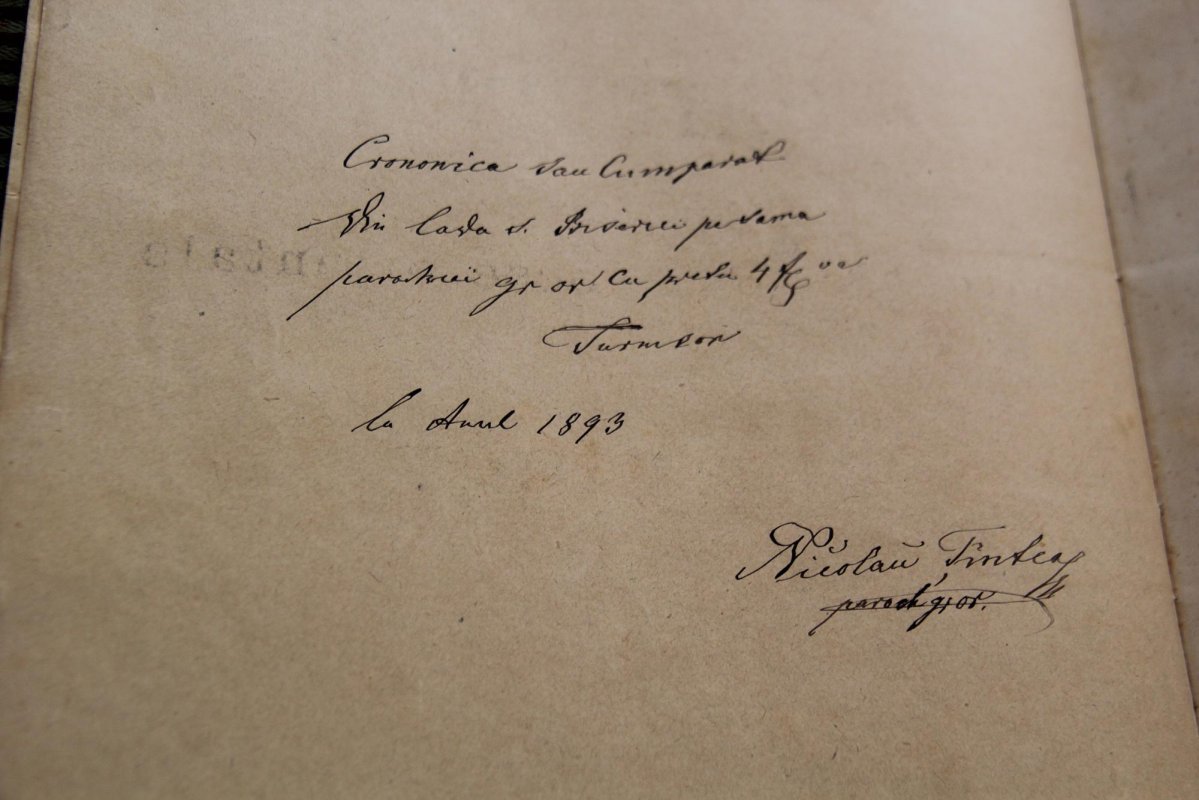 Crononica sau Cumparat
Din lada s. Biserici pe sama
parochiei gr or cu pretu 4 f
la Anul 1893
Nicolaŭ Tintea
paroch gr or.